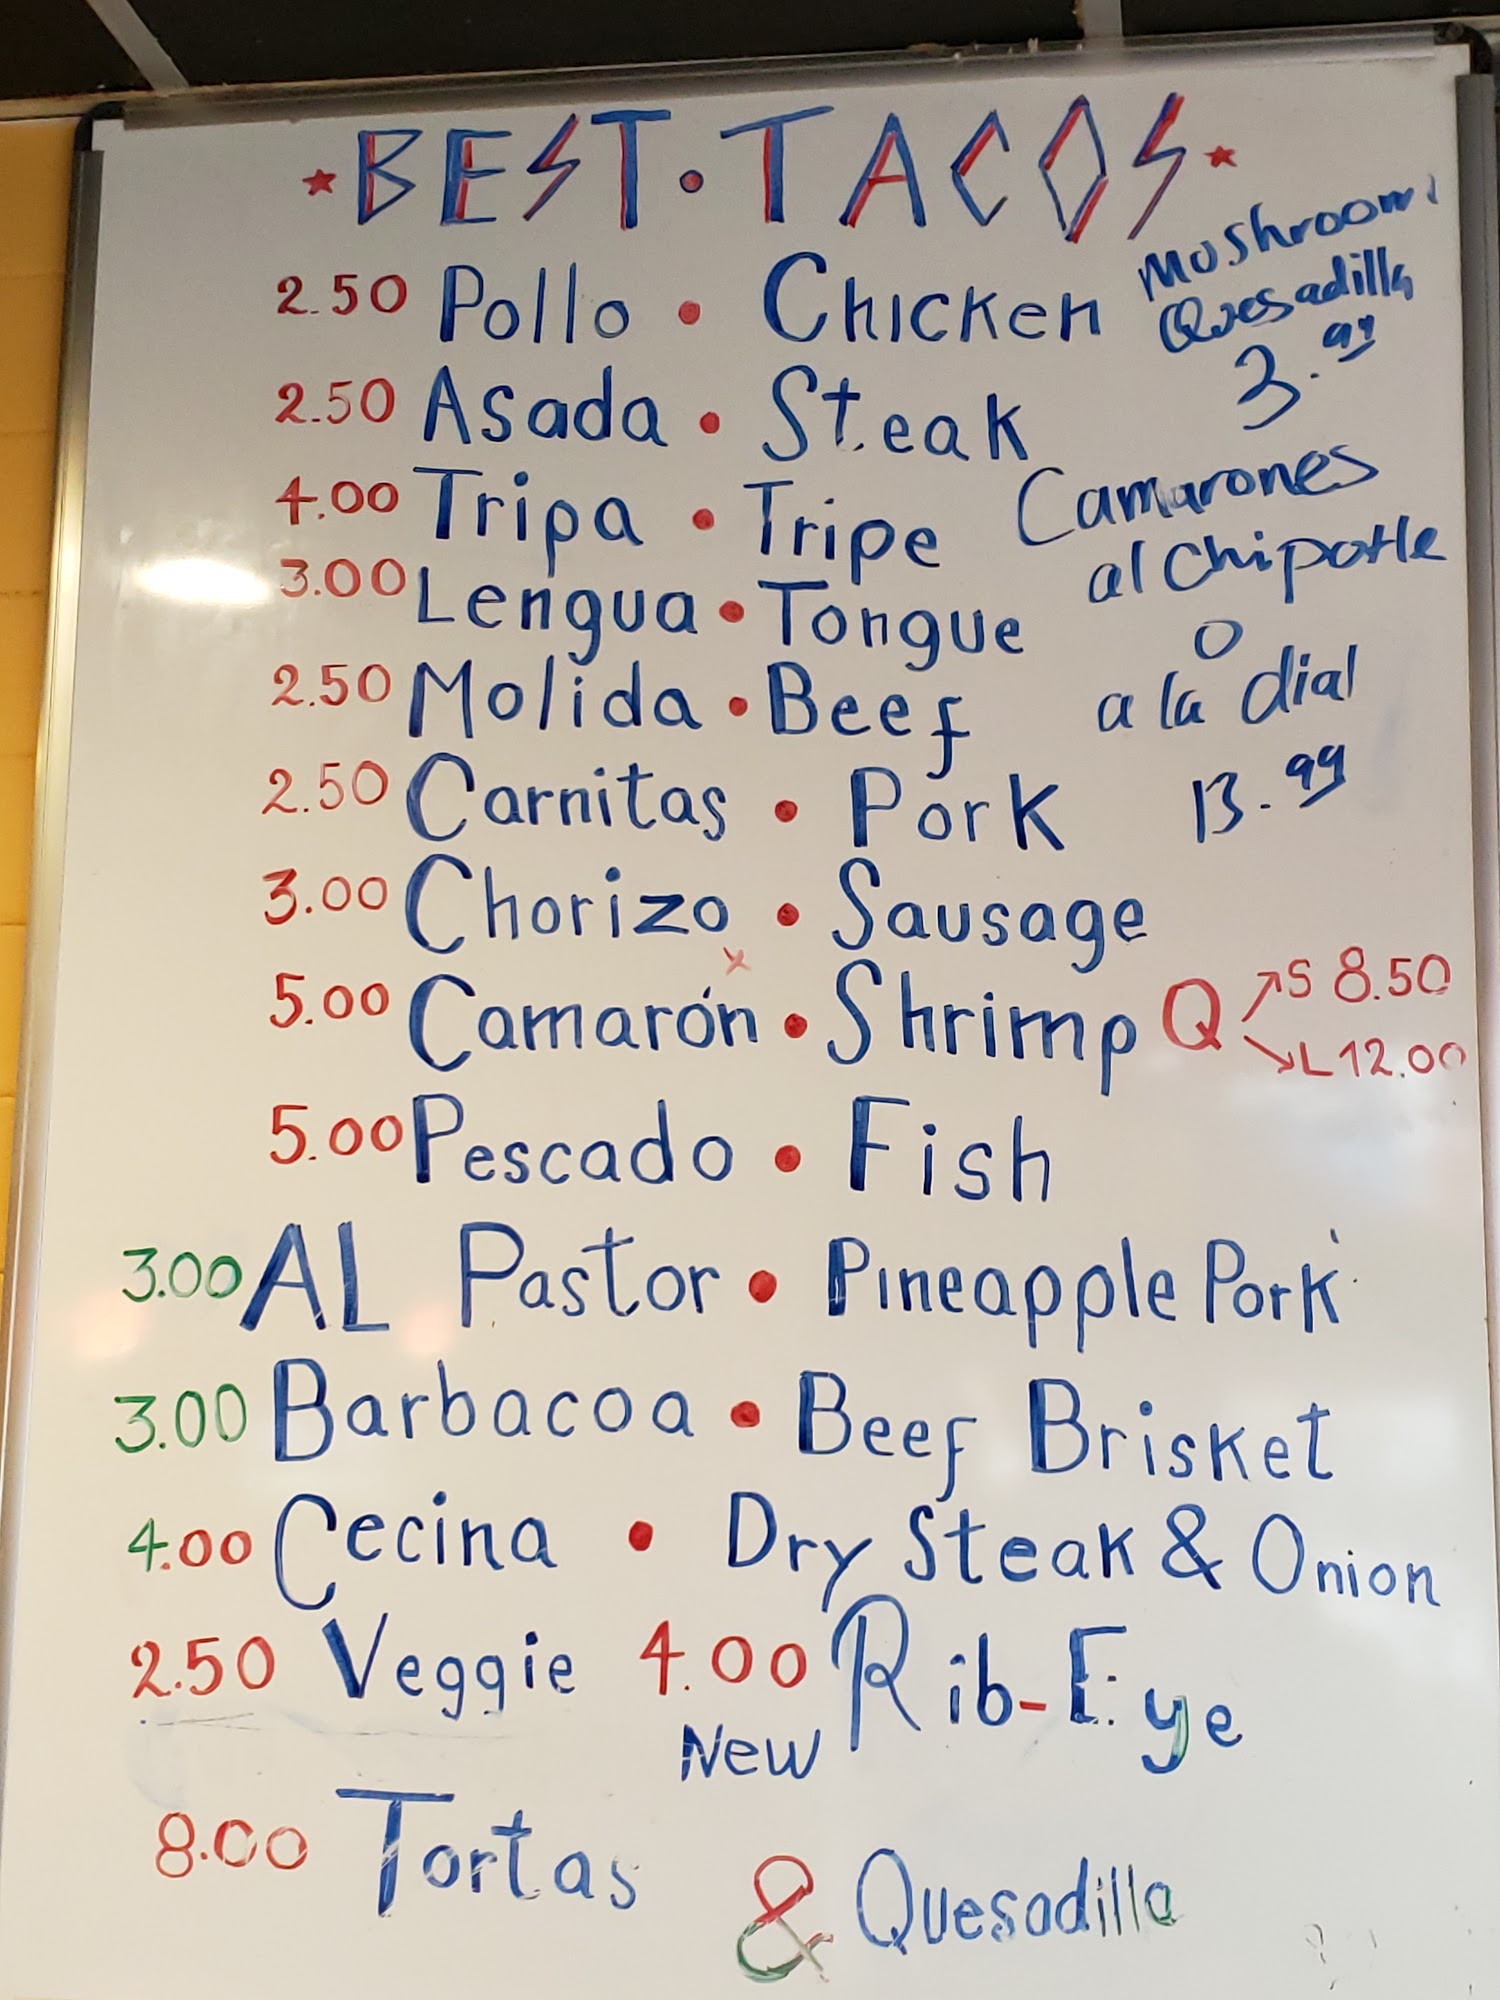 BEST • TACOS
2.50 Pollo • Chicken
2.50 Asada • Steak
4.00 Tripa • Tripe
3.00 Lengua • Tongue
2.50 Molida • Beef
2.50 Carnitas • Pork
3.00 Chorizo • Sausage
5.00 Camarón • Shrimp Q
S 8.50
L 12.00
5.00 Pescado • Fish
3.00 AL Pastor • Pineapple Pork
3.00 Barbacoa • Beef Brisket
4.00 Cecina • Dry Steak & Onion
2.50 Veggie 4.00 Rib-Eye
New
8.00 Tortas & Quesadilla
Mushroom
Quesadilla
3.99
Camarones
al Chipotle
o
a la dial
13.99